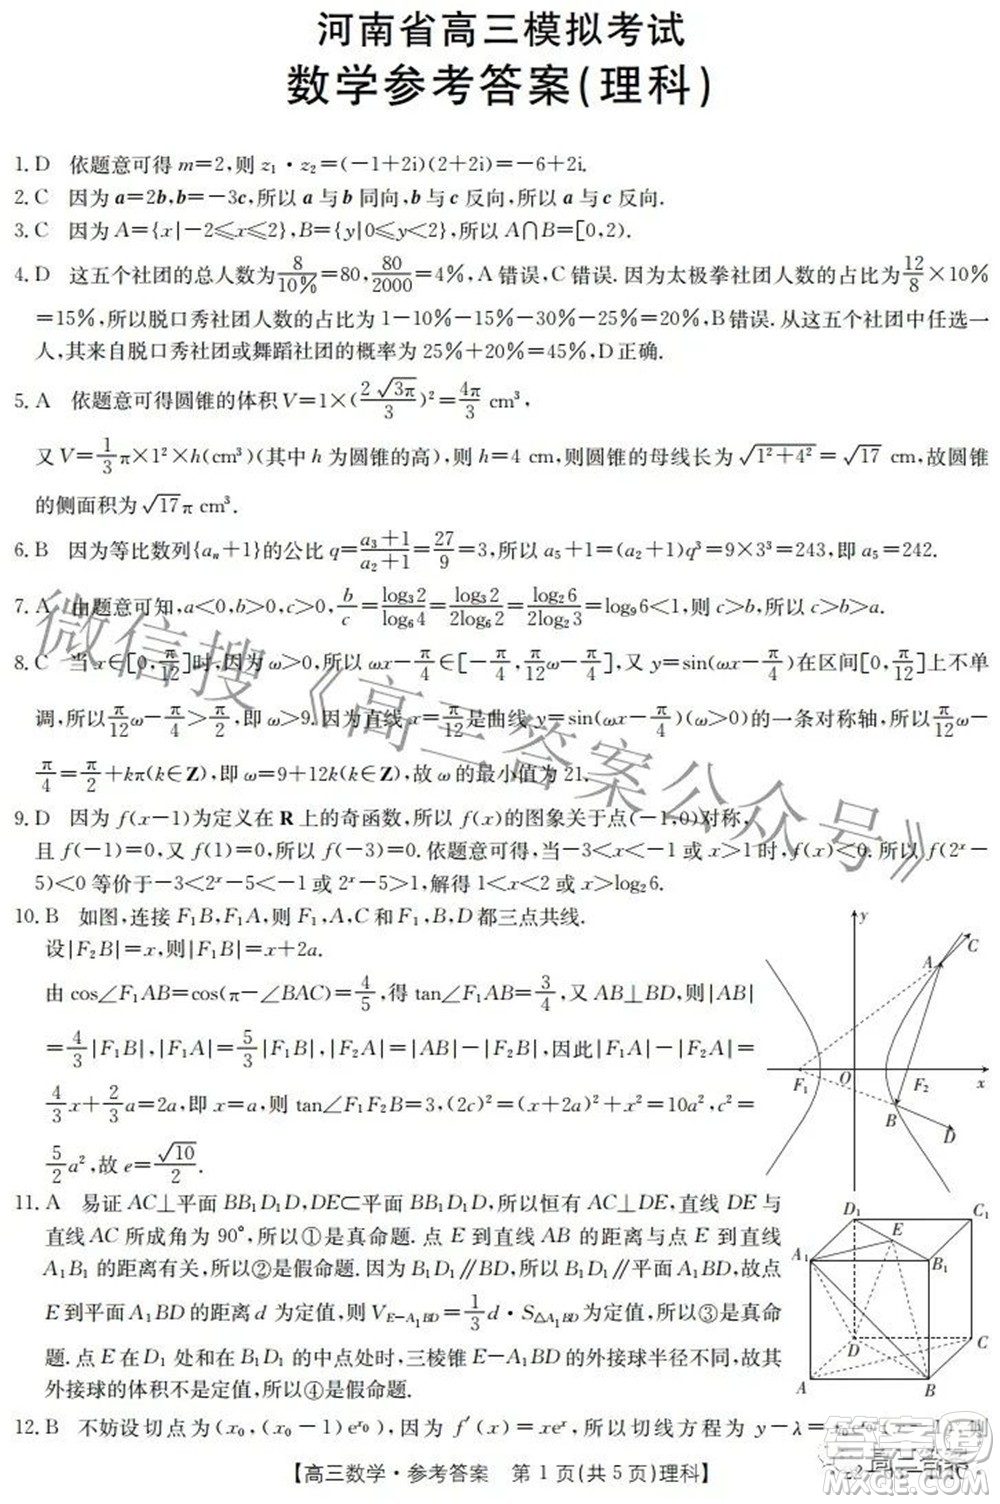 河南省高三模拟考试
数学参考答案(理科)
1. D 依题意可得 m=2,则 z₁·z₂=(-1+2i)(2+2i)=-6+2i.
2. C 因为 a=2b,b=-3c,所以 a 与 b 同向,b 与 c 反向,所以 a 与 c 反向.
3. C 因为 A={x|-2≤x≤2},B={y|0≤y<2},所以 A∩B=[0,2).
4. D 这五个社团的总人数为 8/10%=80,80/2000=4%,A 错误,C 错误. 因为太极拳社团人数的占比为 12/8×10%
=15%,所以脱口秀社团人数的占比为 1-10%-15%-30%-25%=20%,B 错误. 从这五个社团中任选一
人,其来自脱口秀社团或舞蹈社团的概率为 25%+20%=45%,D 正确.
5. A 依题意可得圆锥的体积 V=1×(2√3π/3)²=4π/3 cm³,
又 V=1/3π×1²×h(cm³)(其中 h 为圆锥的高),则 h=4 cm,则圆锥的母线长为 √(1²+4²)=√17 cm,故圆锥
的侧面积为 √17π cm³.
6. B 因为等比数列{aₙ+1}的公比 q=(a₃+1)/(a₂+1)=27/9=3,所以 a₅+1=(a₂+1)q³=9×3³=243,即 a₅=242.
7. A 由题意可知,a<0,b>0,c>0,b/c=log₉2/log₆4=log₃2/2log₆2=log₂6/2log₂3=log₉6<1,则 c>b,所以 c>b>a.
8. C 当 x∈[0,π/12]时,因为 ω>0,所以 ωx-π/4∈[-π/4,π/12ω-π/4],又 y=sin(ωx-π/4)在区间[0,π/12]上不单
调,所以 π/12ω-π/4>π/2,即 ω>9. 因为直线 x=π/12是曲线 y=sin(ωx-π/4)(ω>0)的一条对称轴,所以 π/12ω-
π/4=π/2+kπ(k∈Z),即 ω=9+12k(k∈Z),故 ω 的最小值为 21.
9. D 因为 f(x-1)为定义在 R 上的奇函数,所以 f(x)的图象关于点(-1,0)对称,
且 f(-1)=0,又 f(1)=0,所以 f(-3)=0. 依题意可得,当-3<x<-1 或 x>1 时,f(x)<0. 所以 f(2ˣ-
5)<0 等价于-3<2ˣ-5<-1 或 2ˣ-5>1,解得 1<x<2 或 x>log₂6.
10. B 如图,连接 F₁B,F₁A,则 F₁,A,C 和 F₁,B,D 都三点共线.
设|F₂B|=x,则|F₁B|=x+2a.
由 cos∠F₁AB=cos(π-∠BAC)=4/5,得 tan∠F₁AB=3/4,又 AB⊥BD,则|AB|
=4/3|F₁B|,|F₁A|=5/3|F₁B|,又|AF₂|=|AB|-|F₂B|,因此|F₁A|-|F₂A|=
4/3x+2/3a=2a,即 x=a,则 tan∠F₁F₂B=3,(2c)²=(x+2a)²+x²=10a²,c²=
5/2a²,故 e=√10/2.
y
C
A
F₁
O
F₂
x
B
D
11. A 易证 AC⊥平面 BB₁D₁D,DE⊂平面 BB₁D₁D,所以恒有 AC⊥DE,直线 DE 与
直线 AC 所成角为 90°,所以①是真命题. 点 E 到直线 AB 的距离与点 E 到直线
A₁B₁的距离有关,所以②是假命题. 因为 B₁D₁∥BD,所以 B₁D₁∥平面 A₁BD,故点
E 到平面 A₁BD 的距离 d 为定值,则 V_{E-A₁BD}=1/3d·S_{△A₁BD}为定值,所以③是真命
题. 点 E 在 D₁ 处和在 B₁D₁ 的中点处时,三棱锥 E-A₁BD 的外接球半径不同,故其
外接球的体积不是定值,所以④是假命题.
D₁
C₁
E
A₁
B₁
D
C
A
B
12. B 不妨设切点为(x₀,(x₀-1)e^{x₀}),因为 f′(x)=xeˣ,所以切线方程为 y-λ=
【高三数学·参考答案 第 1 页(共 5 页)理科】
微信搜《高三答案公众号》